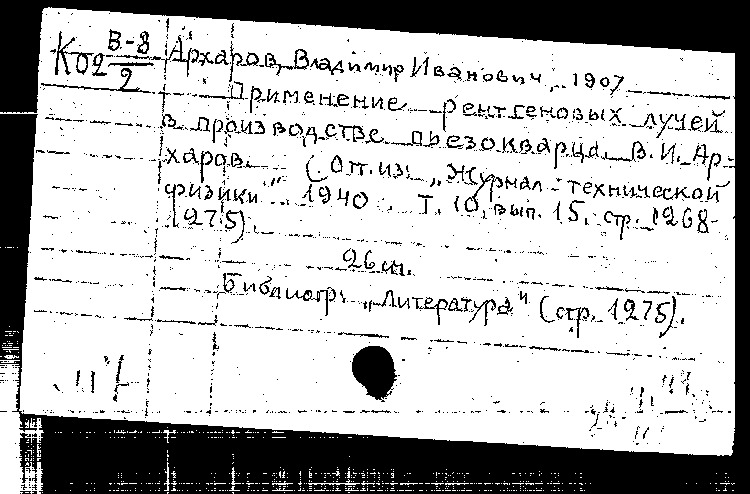 К02 В-8/2
Архаров, Владимир Иванович, 1907
Применение рентгеновых лучей
в производстве пьезокварца. В.И. Ар-
харов. (Отт. из: „Журнал технической
физики" 1940. Т. 10, вып. 15, стр. 1268-
1275).
26 см.
Библиогр: „Литература" (стр. 1275).